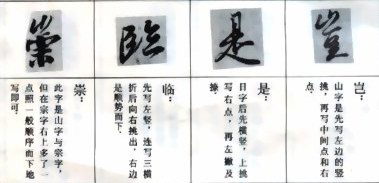 豈
岂：
山字是先写左边的竖
挑，再写中间点和右
点。
是
是：
日字后先横竖，上挑
写右点，再左撇及
捺。
臨
临：
先写左竖，连写三横
折后向右挑出，右边
是顺势而下。
崇
崇：
此字是山字与宗字，
但在宗字右上多了一
点照一般顺序而下地
写即可。